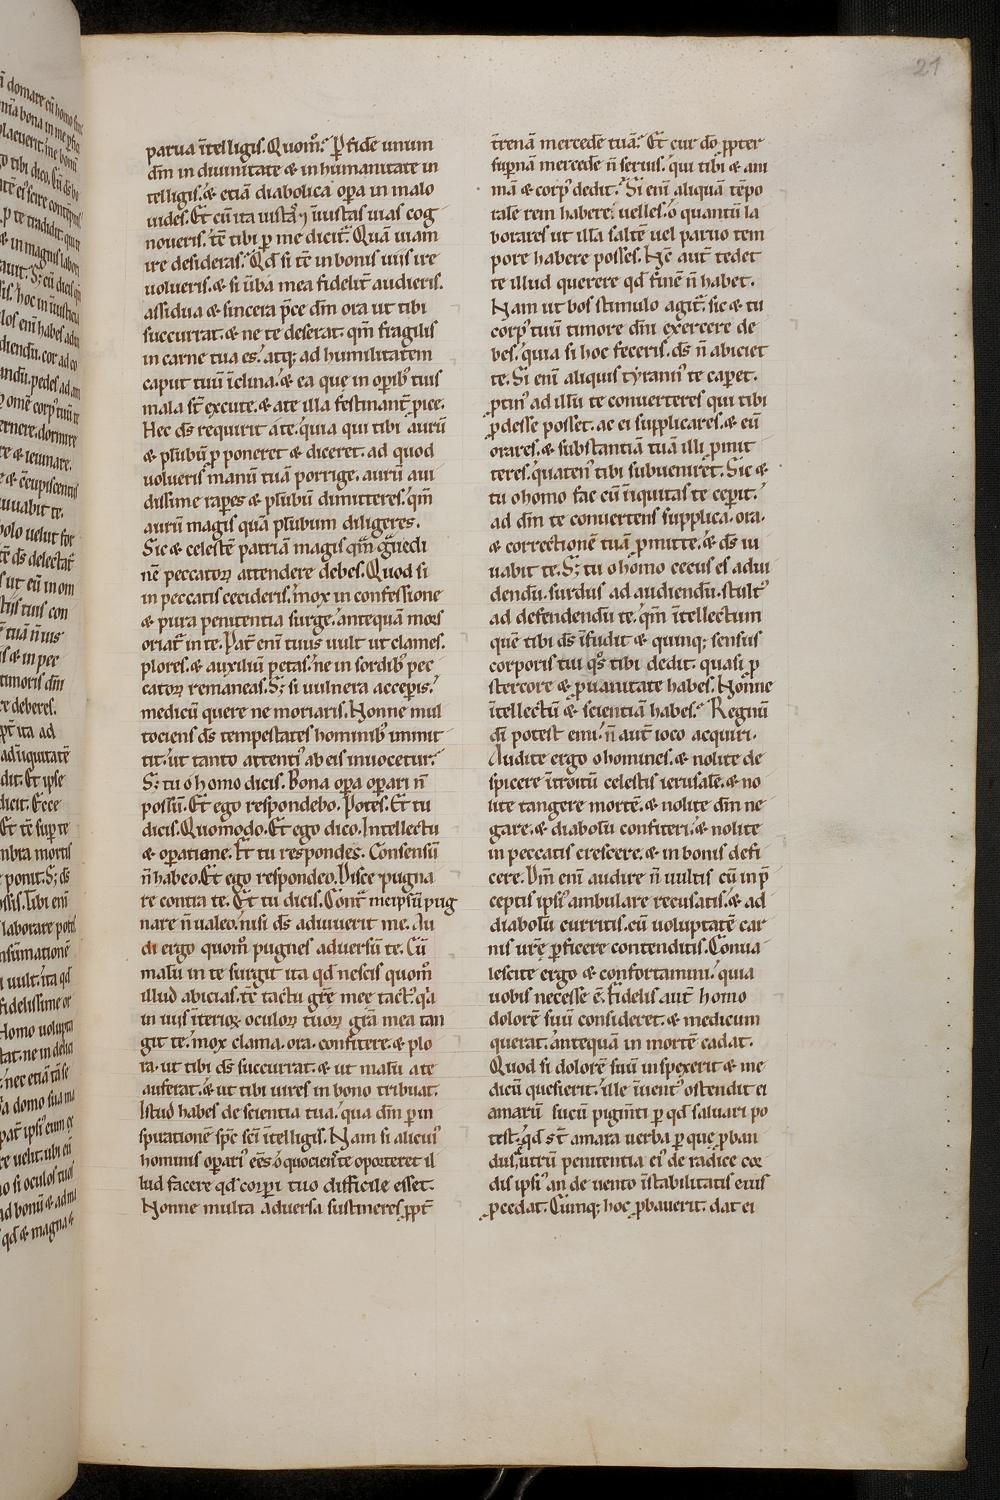 21
parua ĩtelligis. Quom̃. Ꝑ fidẽ unum
dm̃ in diuinitate & in humanitate in
telligis. & etiã diabolica oꝑa in malo
uides. Et cũ ita iusta ⁊ iniustas uias cog
noueris. tẽ tibi ꝑ me dicit̃. Quã uiam
ire desideras. Qd̃ si tẽ in bonis uiis ire
uolueris. & si ũba mea fidelit̃ audieris.
assidua & sincera p̃ce dm̃ ora ut tibi
succurrat. & ne te deserat. qm̃ fragilis
in carne tua es. atq; ad humilitatem
caput tuũ ĩclina. & ea que in oꝑib᷒ tuis
mala st̃ excute. & a te illa festinant̃ ꝓice.
Hec ds̃ requirit a te. quia qui tibi aurũ
& plũbũ ꝓponeret & diceret. ad quod
uolueris manũ tuã porrige. aurũ aui
dissime raꝑes & plũbũ dimitteres. qm̃
aurũ magis quã plũbum diligeres.
Sic & celestẽ patriã magis qm̃ g̃hedi
nẽ peccatoꝝ attendere debes. Quod si
in peccatis cecideris. mox in confessione
& pura penitentia surge. antequã mors
oriat̃ in te. Pat̃ eni tuus uult ut clames.
plores. & auxiliũ petas. ne in sordib᷒ pec
catoꝝ remaneas. S; si uulnera acceꝑis.
medicũ quere ne moriaris. Nonne mul
tociens ds̃ tempestates hominib᷒ immit
tit. ut tanto attenti᷒ ab eis inuocetur.
S; tu o homo dicis. Bona oꝑa oꝑari ñ
possũ. Et ego respondebo. Potes. Et tu
dicis. Quomodo. Et ego dico. Intellectu
& oꝑatione. Et tu respondes. Consensũ
ñ habeo. Et ego respondeo. Disce pugna
re contra te. Et tu dicis. Cont̃ meipsũ pug
nare ñ ualeo. nisi ds̃ adiuuerit me. Au
di ergo quom̃ pugnes aduersũ te. Cũ
malũ in te surgit ita qd̃ nescis quom̃
illud abicias. tẽ tactu gr̃e mee tact᷒. q̃a
in uiis ĩterioꝝ oculoꝝ tuoꝝ gr̃a mea tan
git te. mox clama. ora. confitere. & plo
ra. ut tibi ds̃ succurrat. & ut malũ a te
auferat. & ut tibi uires in bono tribuat.
Istud habes de scientia tua. qua dm̃ ꝑ in
spirationẽ sp̃c sc̃i ĩtelligis. Nam si alicui᷒
hominis oꝑari᷒ eẽs. o quociens te oporteret il
lud facere qd̃ corpi tuo difficile esset.
Nonne multa aduersa sustineres ꝓpt̃
t̃renã mercedẽ tuã. Et cur do ꝓpter
suꝑnã mercedẽ ñ seruis. qui tibi & ani
mã & corp᷒ dedit. Si eni aliquã tẽpo
ralẽ rem habere uelles. o quantũ la
borares ut illã saltẽ uel paruo tem
pore habere posses. Nc̃ aut̃ tedet
te illud querere qd̃ finẽ ñ habet.
Nam ut bos stimulo agit̃. sic & tu
corp᷒ tuũ timore dñi exercere de
bes. quia si hoc feceris. ds̃ ñ abiciet
te. Si eni aliquis tyrann᷒ te caꝑet.
ꝓtin᷒ ad illũ te conuerteres qui tibi
ꝓdesse posset. ac ei supplicares. & eũ
orares. & substantiã tuã illi ꝓmit
teres. quaten᷒ tibi subueniret. Sic &
tu o homo fac cũ iniquitas te ceꝑit.
ad dm̃ te conuertens supplica. ora.
& correctionẽ tuã ꝓmitte. & ds̃ iu
uabit te. S; tu o homo cecus es ad ui
dendũ. surdus ad audiendũ. stult᷒
ad defendendũ te. qm̃ ĩtellectum
quẽ tibi ds̃ ĩfudit & quinq; sensus
corporis tui q̃s tibi dedit. quasi ꝓ
stercore & ꝓ uanitate habes. Nonne
ĩtellectũ & scientiã habes. Regnũ
di potest emi. ñ aut̃ ioco acquiri.
Audite ergo o homines. & nolite de
spicere ĩtroitũ celestis ierusalẽ. & no
lite tangere mortẽ. & nolite dm̃ ne
gare. & diabolũ confiteri. & nolite
in peccatis crescere. & in bonis defi
cere. Dm̃ eni audire ñ uultis cũ in p̃
ceptis ipsi᷒ ambulare recusatis. & ad
diabolũ curritis. cũ uoluptatẽ car
nis ur̃ẽ ꝑficere contenditis. Conua
lescite ergo & confortamini. quia
uobis necesse ẽ. Fidelis aut̃ homo
dolorẽ suũ consideret. & medicum
querat. antequã in mortẽ cadat.
Quod si dolorẽ suũ inspexerit & me
dicũ quesierit. ille ĩuent᷒ ostendit ei
amarũ sucũ pigm̃ti ꝑ qd̃ saluari po
test. qd̃ st̃ amara uerba ꝑ que ꝓban
dus. utrũ penitentia ei᷒ de radice cor
dis ipsi᷒ an de uento ĩstabilitatis eius
ꝓcedat. Cumq; hoc ꝓbauerit. dat ei